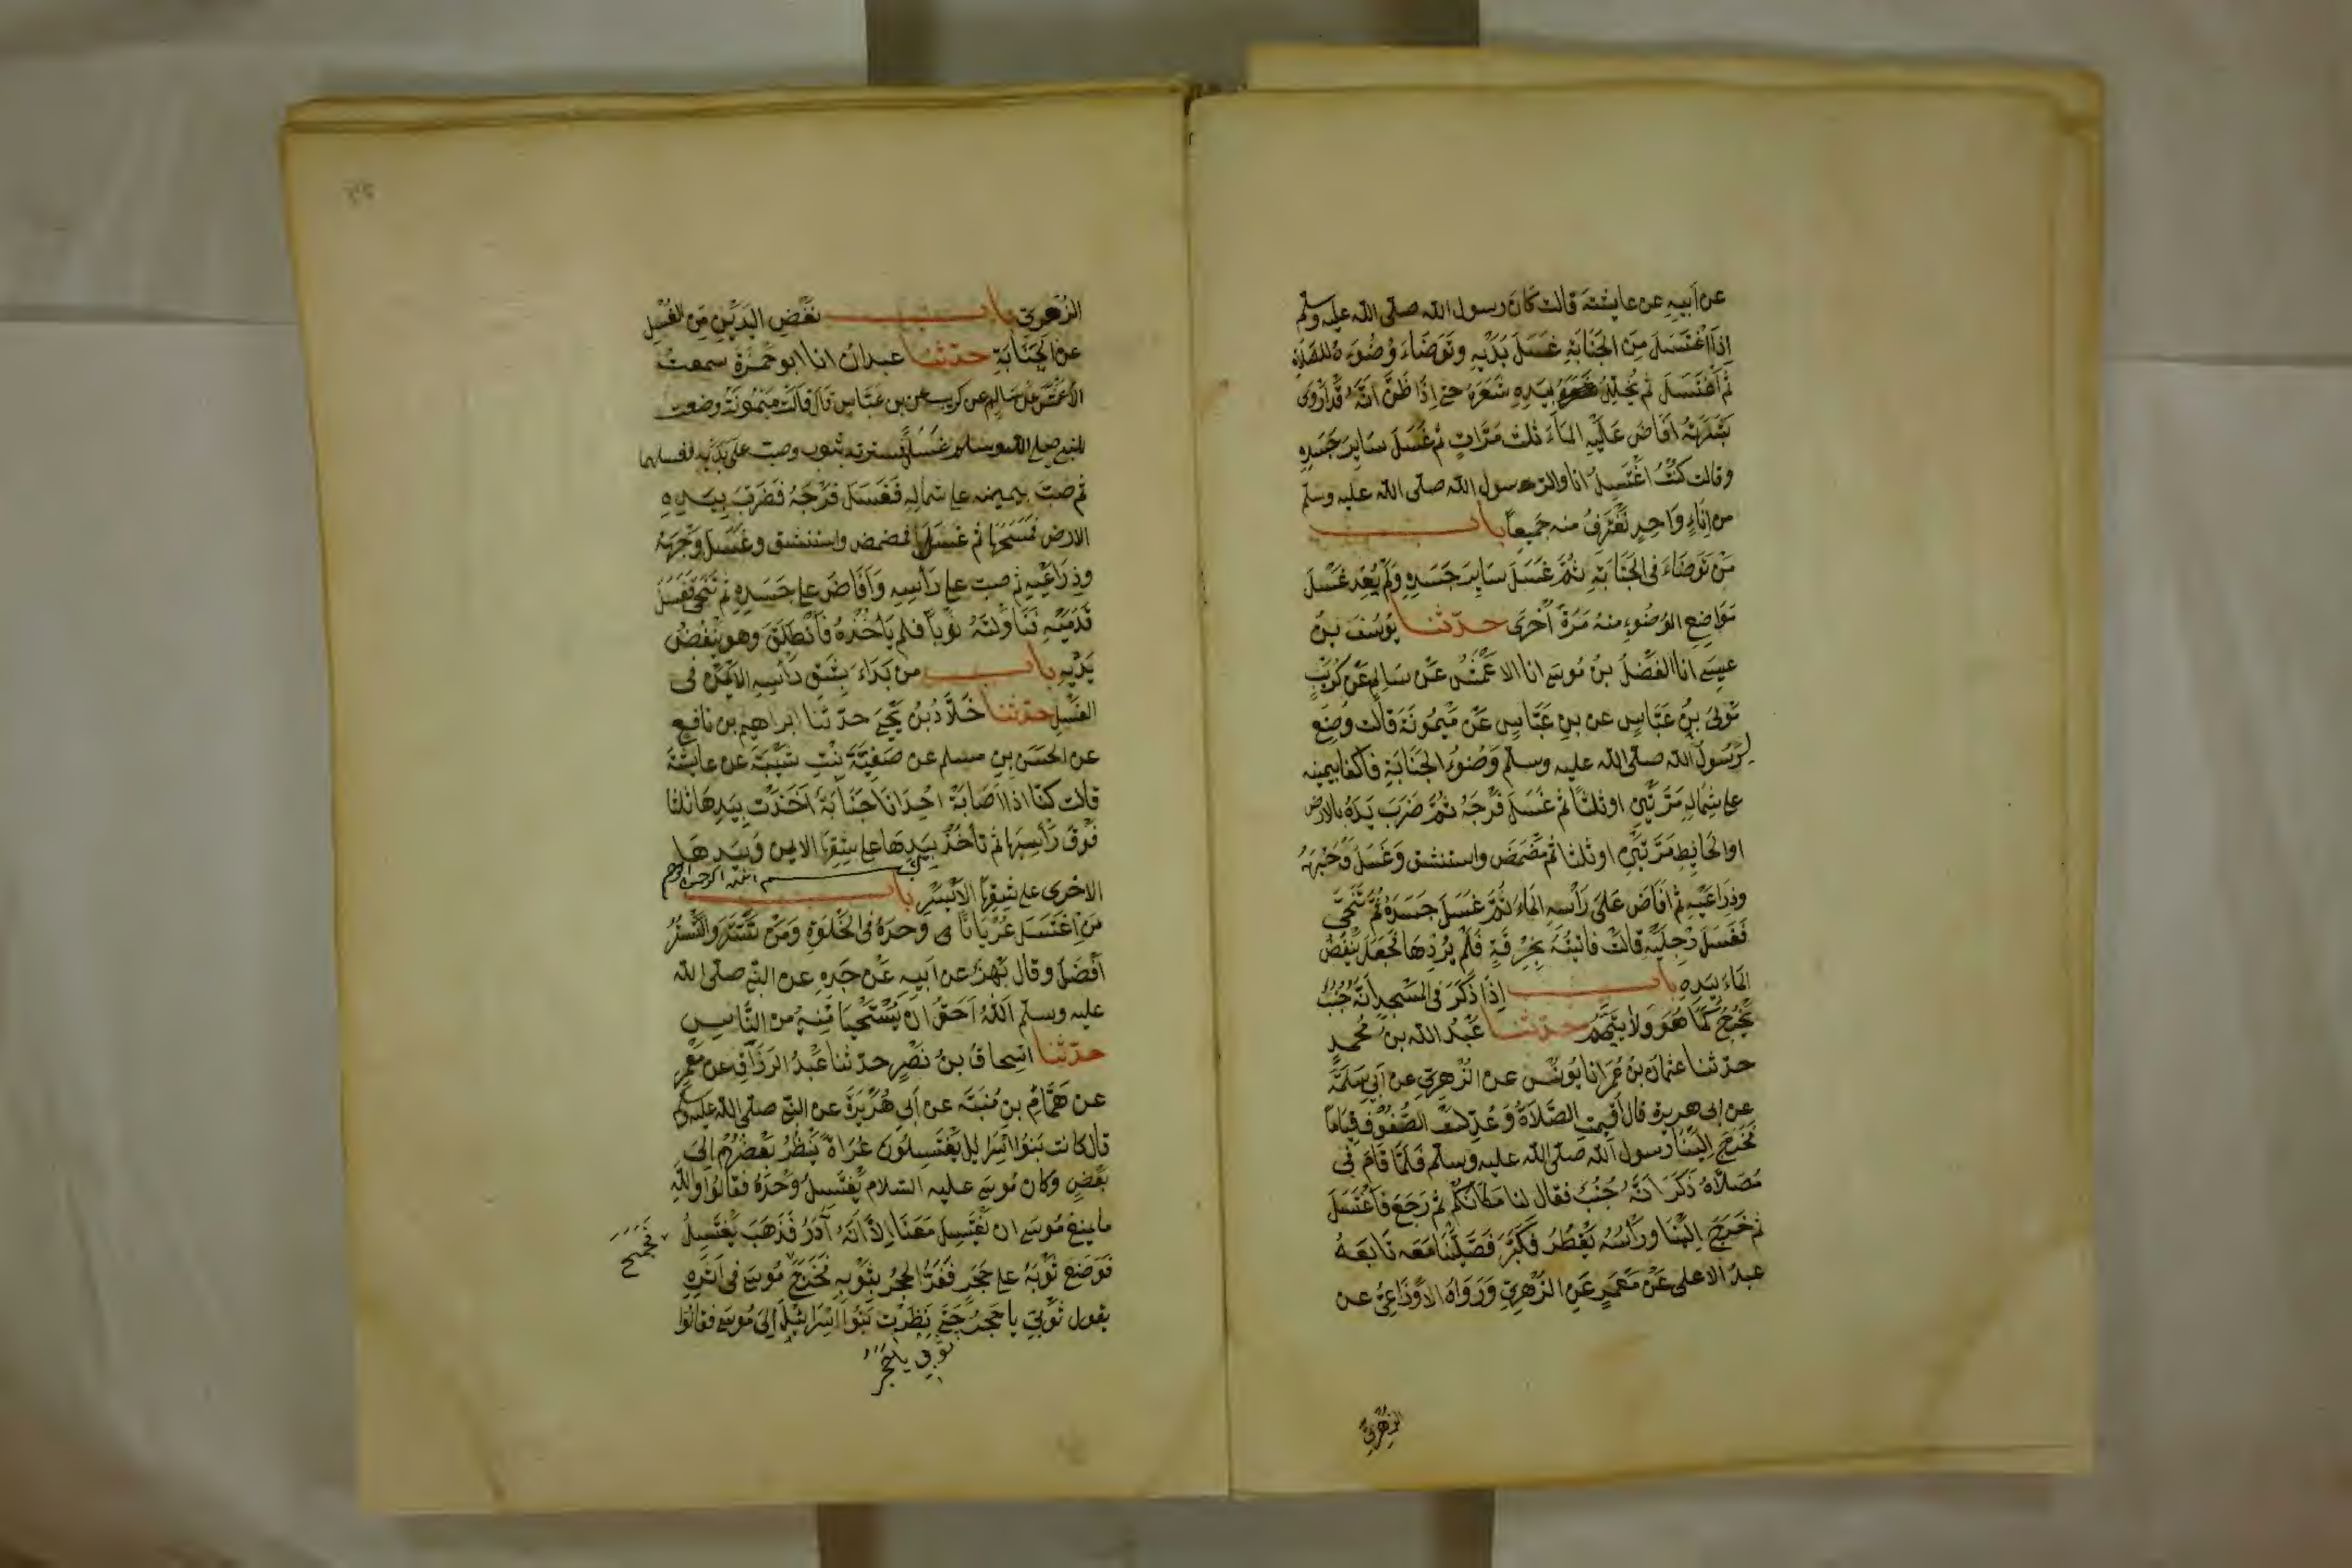 عن ابيه عن عايشة قالت كان رسول الله صلى الله عليه وسلم
اذا اغتسل من الجنابة غسل يديه وتوضاء وضوءه للصلاة
ثم اغتسل ثم يخلل بيده شعره حتى اذا ظن انه قد اروى
بشرته افاض عليه الماء ثلث مرات ثم غسل ساير جسده
وقالت كنت اغتسل انا والنبي رسول الله صلى الله عليه وسلم
من اناء واحد نغترف منه جميعا باب
من توضاء في الجنابة ثم غسل ساير جسده ولم يعد غسل
مواضع الوضوء منه مرة اخرى حدثنا يوسف بن
عيسى انا الفضل بن موسى انا الاعمش عن سالم عن كريب
مولى بن عباس عن بن عباس عن ميمونة قالت وضع
لرسول الله صلى الله عليه وسلم وضوء الجنابة فاكفا بيمينه
على شماله مرتين او ثلثا ثم غسل فرجه ثم ضرب يده بالارض
او الحايط مرتين او ثلثا ثم مضمض واستنشق وغسل وجهه
وذراعيه ثم افاض على رأسه الماء ثم غسل جسده ثم تنحى
فغسل رجليه قالت فاتيته بخرقة فلم يردها فجعل ينفض
الماء بيده باب اذا ذكر في المسجد انه جنب
يخرج كما هو ولا يتيمم حدثنا عبد الله بن محمد
حدثنا عثمان بن عمر انا يونس عن الزهري عن ابي سلمة
عن ابي هريرة قال اقيمت الصلاة وعدلت الصفوف قياما
فخرج الينا رسول الله صلى الله عليه وسلم فلما قام في
مصلاه ذكر انه جنب فقال لنا مكانكم ثم رجع فاغتسل
ثم خرج الينا ورأسه يقطر فكبر فصلينا معه تابعه
عبد الاعلى عن معمر عن الزهري ورواه الاوزاعي عن
الزهري
الزهري باب نفض اليدين من الغسل
عن الجنابة حدثنا عبدان انا ابو حمزة سمعت
الاعمش عن سالم عن كريب عن بن عباس قال قالت ميمونة وضعت
للنبي صلى الله عليه وسلم غسلا فسترته بثوب وصب على يديه فغسلهما
ثم صب بيمينه على شماله فغسل فرجه فضرب بيده
الارض فمسحها ثم غسلها فمضمض واستنشق وغسل وجهه
وذراعيه ثم صب على رأسه وافاض على جسده ثم تنحى فغسل
قدميه فناولته ثوبا فلم ياخذه فانطلق وهو ينفض
يديه باب من بداء بشق رأسه الايمن في
الغسل حدثنا خلاد بن يحيى حدثنا ابراهيم بن نافع
عن الحسن بن مسلم عن صفية بنت شيبة عن عايشة
قالت كنا اذا اصابة احدانا جنابة اخذت بيدها ثلثا
فوق رأسها ثم تأخذ بيدها على شقها الايمن وبيدها
بسم الله الرحمن الرحيم
الاخرى على شقها الايسر باب
من اغتسل عريانا وحده في الخلوة ومن تستر والتستر
افضل وقال بهز عن ابيه عن جده عن النبي صلى الله
عليه وسلم الله احق ان يستحيا منه من الناس
حدثنا اسحاق بن نصر حدثنا عبد الرزاق عن معمر
عن همام بن منبه عن ابي هريرة عن النبي صلى الله عليه وسلم
قال كانت بنوا اسرايل يغتسلون عراة ينظر بعضهم الى
بعض وكان موسى عليه السلام يغتسل وحده فقالوا والله
ما يمنع موسى ان يغتسل معنا الا انه آدر فذهب يغتسل
فجمح
فوضع ثوبه على حجر ففر الحجر بثوبه فخرج موسى في اثره
يقول ثوبي يا حجر حتى نظرت بنوا اسرائيل الى موسى فقالوا
ثوبي يا حجر